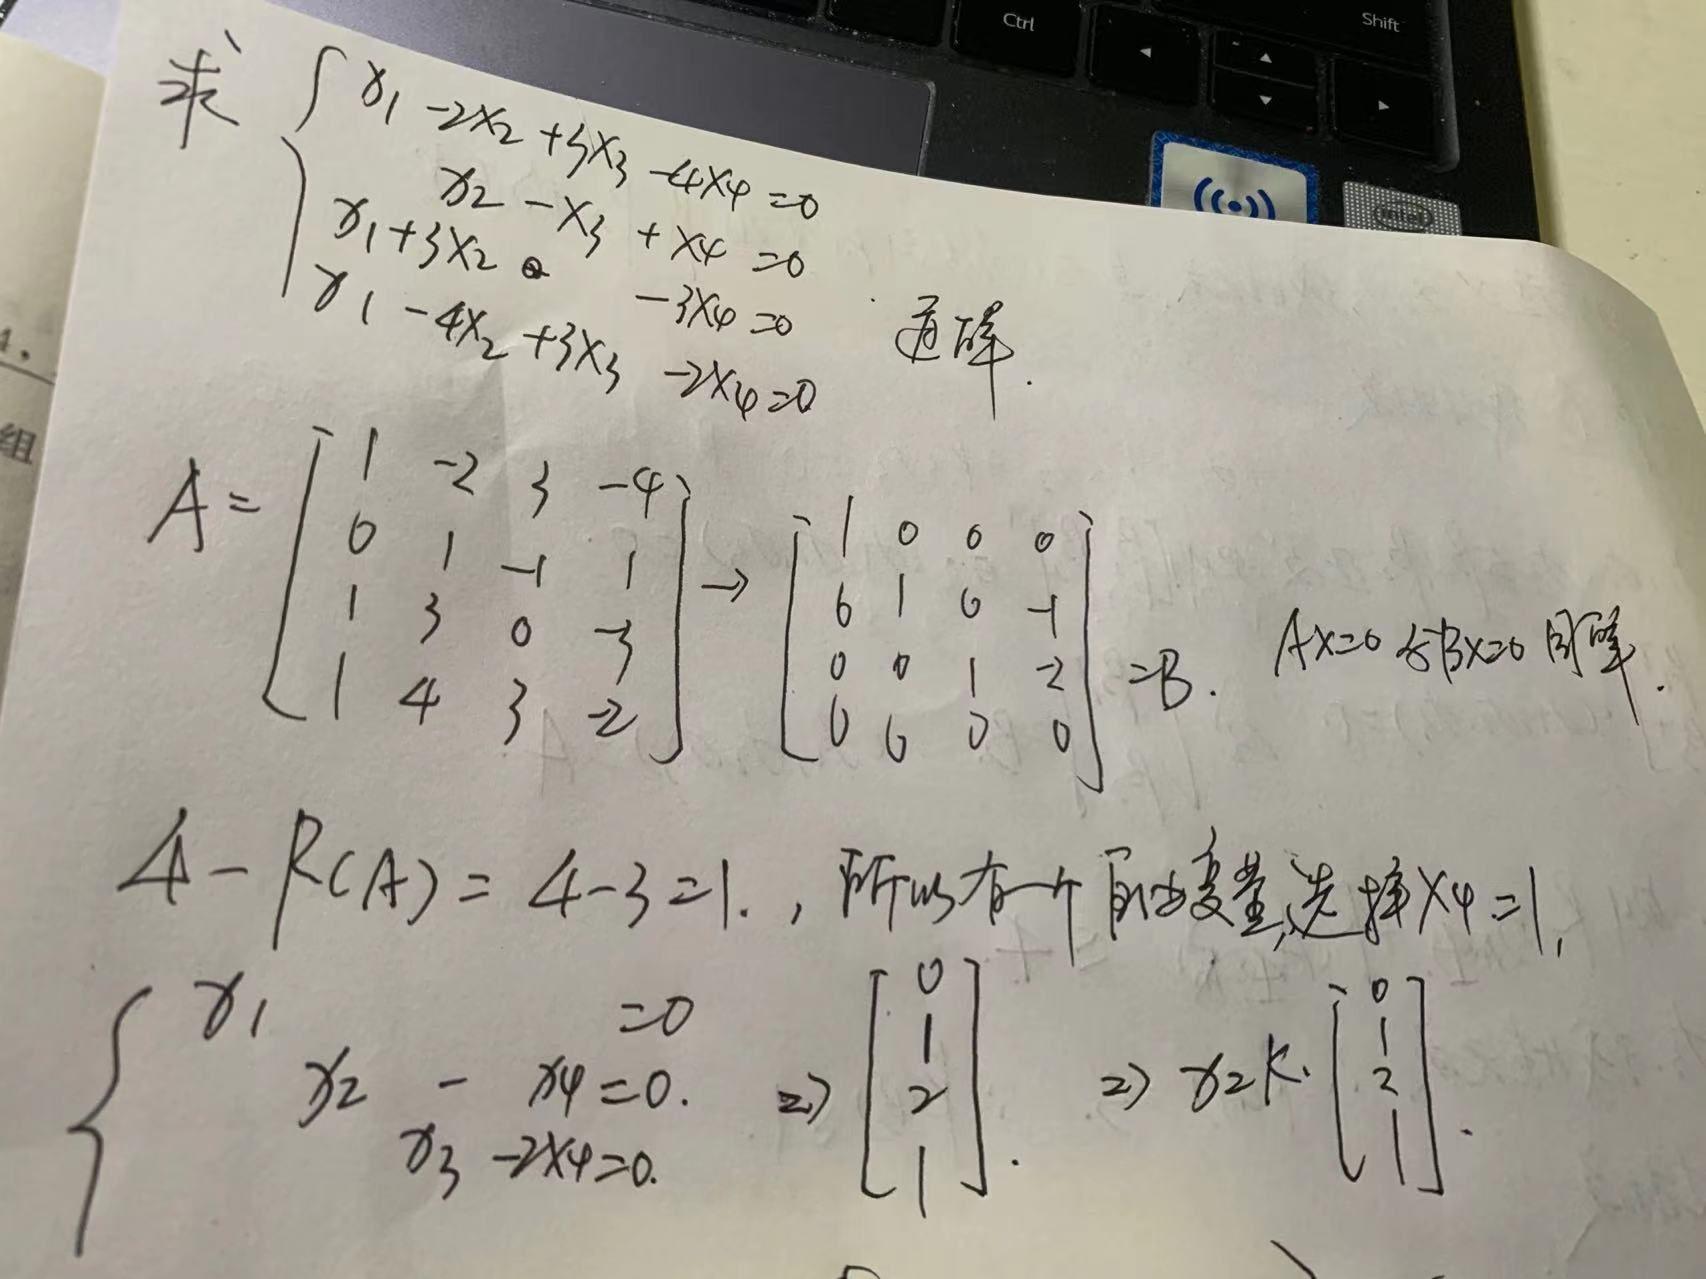 Ctrl
Shift
intel
求 { x₁ -2x₂ +3x₃ -4x₄ =0
x₂ -x₃ +x₄ =0
x₁+3x₂ -3x₄ =0
x₁ -4x₂ +3x₃ -2x₄=0
通解.
4.
组
A= [ 1 -2 3 -4
0 1 -1 1
1 3 0 -3
1 4 3 -2 ]
→ [ 1 0 0 0
0 1 0 -1
0 0 1 -2
0 0 0 0 ] =B. Ax=0与Bx=0同解.
4-R(A)=4-3=1., 所以有一个自由变量,选择x₄=1,
{ x₁ =0
x₂ - x₄=0.
x₃ -2x₄=0.
=> [ 0
1
2
1 ].
=> x=k· [ 0
1
2
1 ].